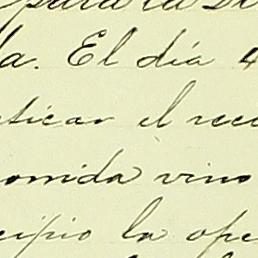 para la
la. El día 4
ticar el rece
comida vino
cipio la ope